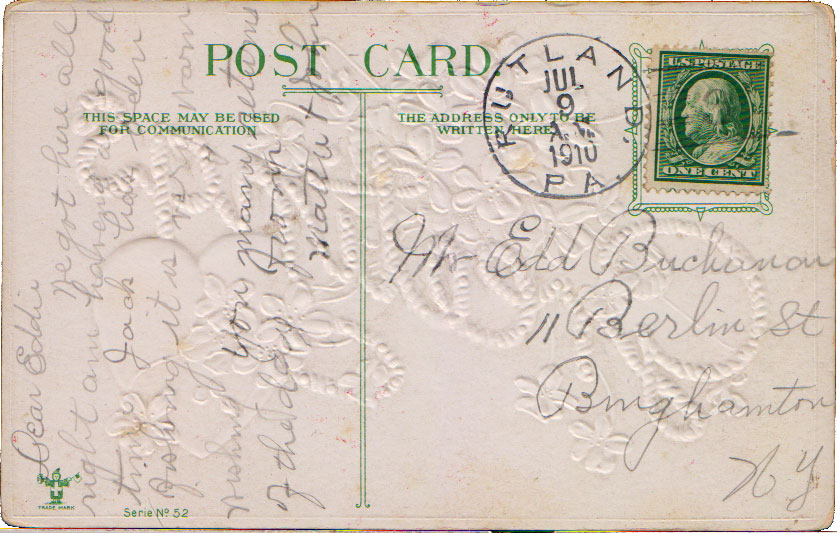 POST CARD
THIS SPACE MAY BE USED
FOR COMMUNICATION
THE ADDRESS ONLY TO BE
WRITTEN HERE
RUTLAND, PA.
JUL
9
1910
U.S. POSTAGE
ONE CENT
Mr Edd Buchanan
11 Berlin St
Binghamton
N Y
Dear Eddie
We got here all
right am having a good
time Jack has been
fishing it is very warm
wishing you many returns
of the day from
Mattie & John
TRADE MARK
Serie Nº 52